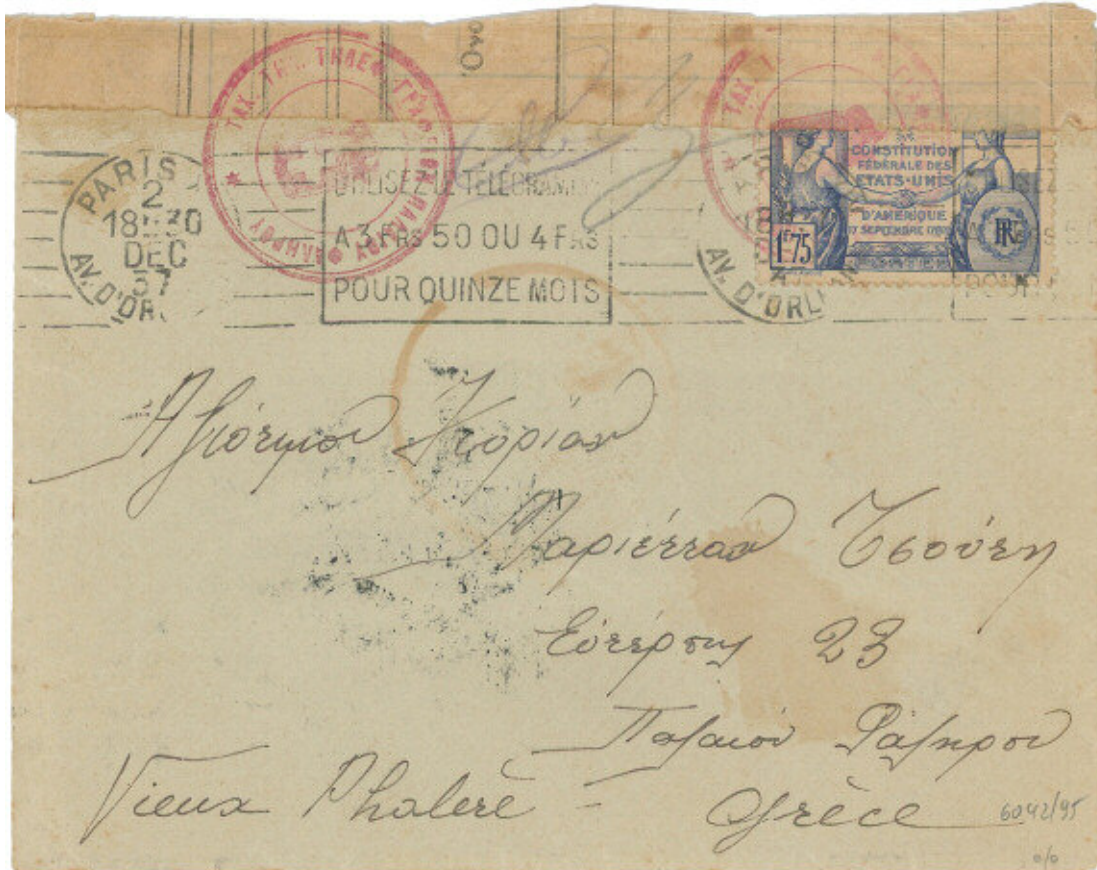 TAX. ΤΗΛ. ΤΗΛΕΦ. ΓΡΑΦ
PARIS
2
18H30
DEC
37
AV. D'OR
UTILISEZ LE TÉLÉGRAMME
A 3 FRS 50 OU 4 FRS
POUR QUINZE MOTS
CONSTITUTION
FÉDÉRALE DES
ETATS-UNIS
D'AMÉRIQUE
17 SEPTEMBRE
1F75
RF
AV. D'ORL
Ἀξιότιμον Κυρίαν
Μαριέτταν
Εὐτέρπης 23
Παλαιὸν Φάληρον
Vieux Phalère -
Grèce
6042/95